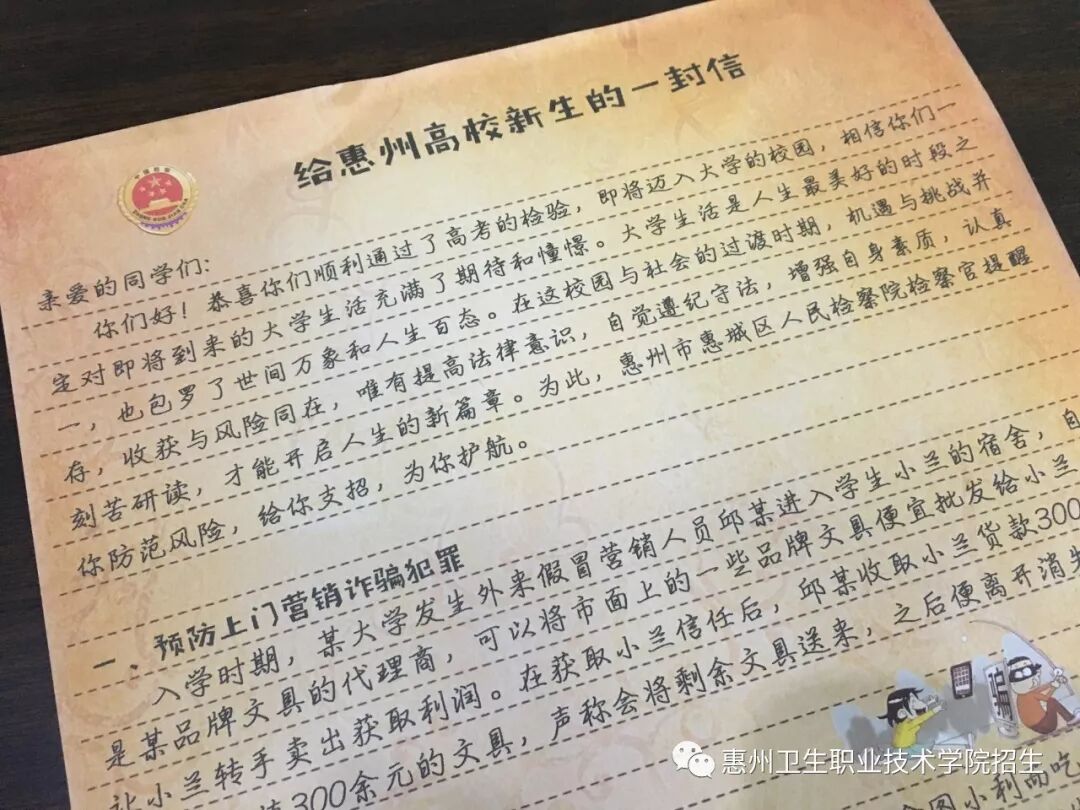 给惠州高校新生的一封信
亲爱的同学们：
你们好！恭喜你们顺利通过了高考的检验，即将迈入大学的校园，相信你们一
定对即将到来的大学生活充满了期待和憧憬。大学生活是人生最美好的时段之
一，也包罗了世间万象和人生百态。在这校园与社会的过渡时期，机遇与挑战并
存，收获与风险同在，唯有提高法律意识，自觉遵纪守法，增强自身素质，认真
刻苦研读，才能开启人生的新篇章。为此，惠州市惠城区人民检察院检察官提醒
你防范风险，给你支招，为你护航。
一、预防上门营销诈骗犯罪
入学时期，某大学发生外来假冒营销人员邱某进入学生小兰的宿舍，自
是某品牌文具的代理商，可以将市面上的一些品牌文具便宜批发给小兰
让小兰转手卖出获取利润。在获取小兰信任后，邱某收取小兰货款300
300余元的文具，声称会将剩余文具送来，之后便离开消失
小利而吃
惠州卫生职业技术学院招生